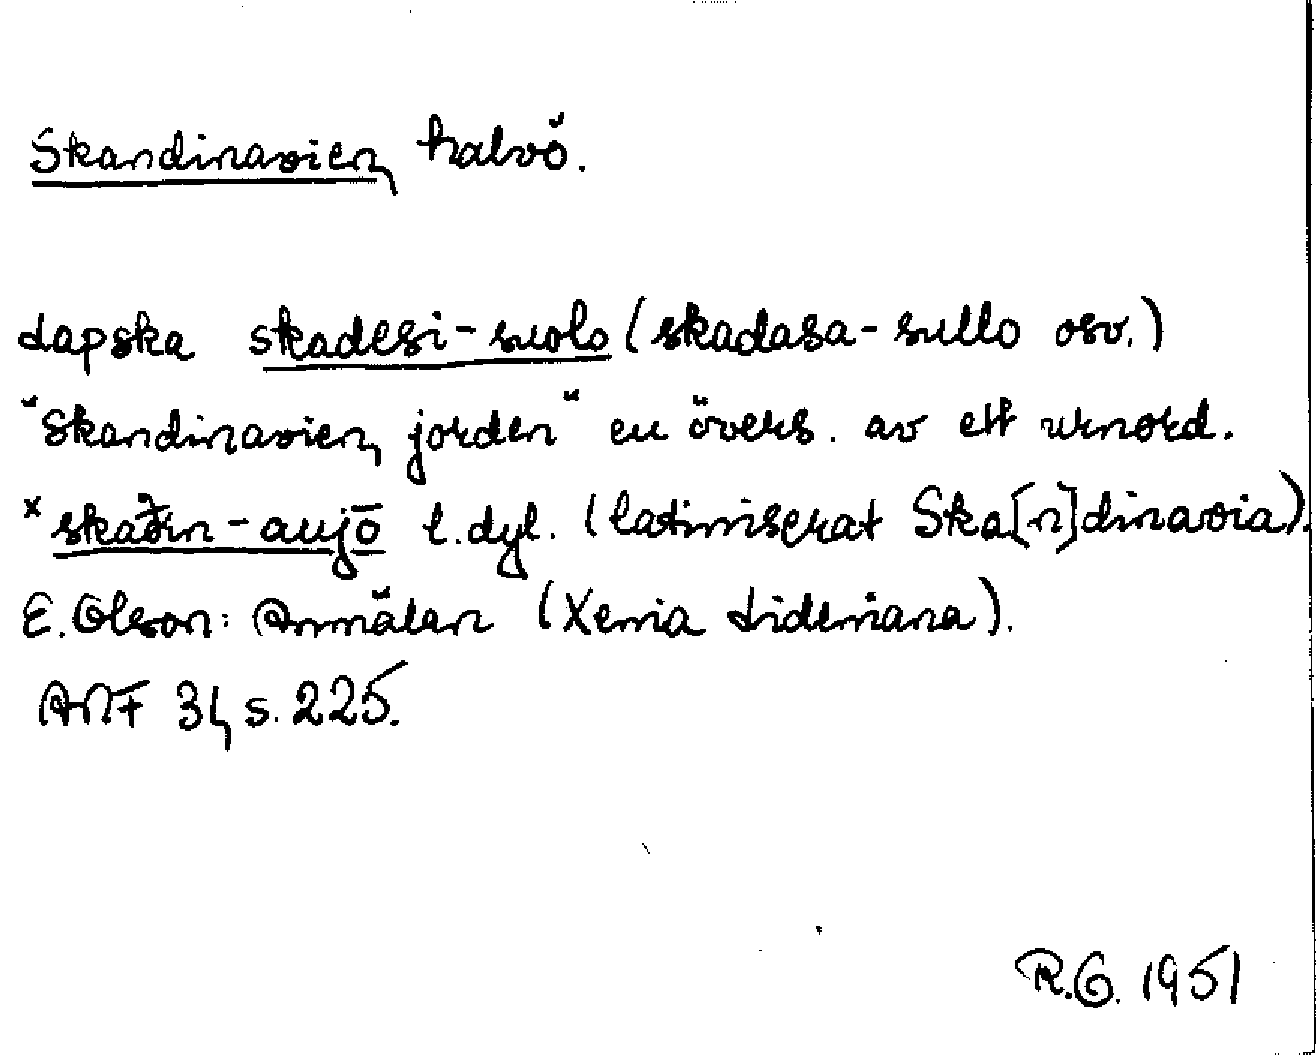 Skandinavien, halvö.
Lapska skadesi-suolo (skadasa-sullo osv.)
"Skandinavien, jorden" en övers. av ett urnord.
x skaðin-aujō l.dyl. (latiniserat Ska[n]dinavia).
E. Olson: Anmälan (Xenia Lideniana).
ANF 31, s. 225.
R.G. 1951